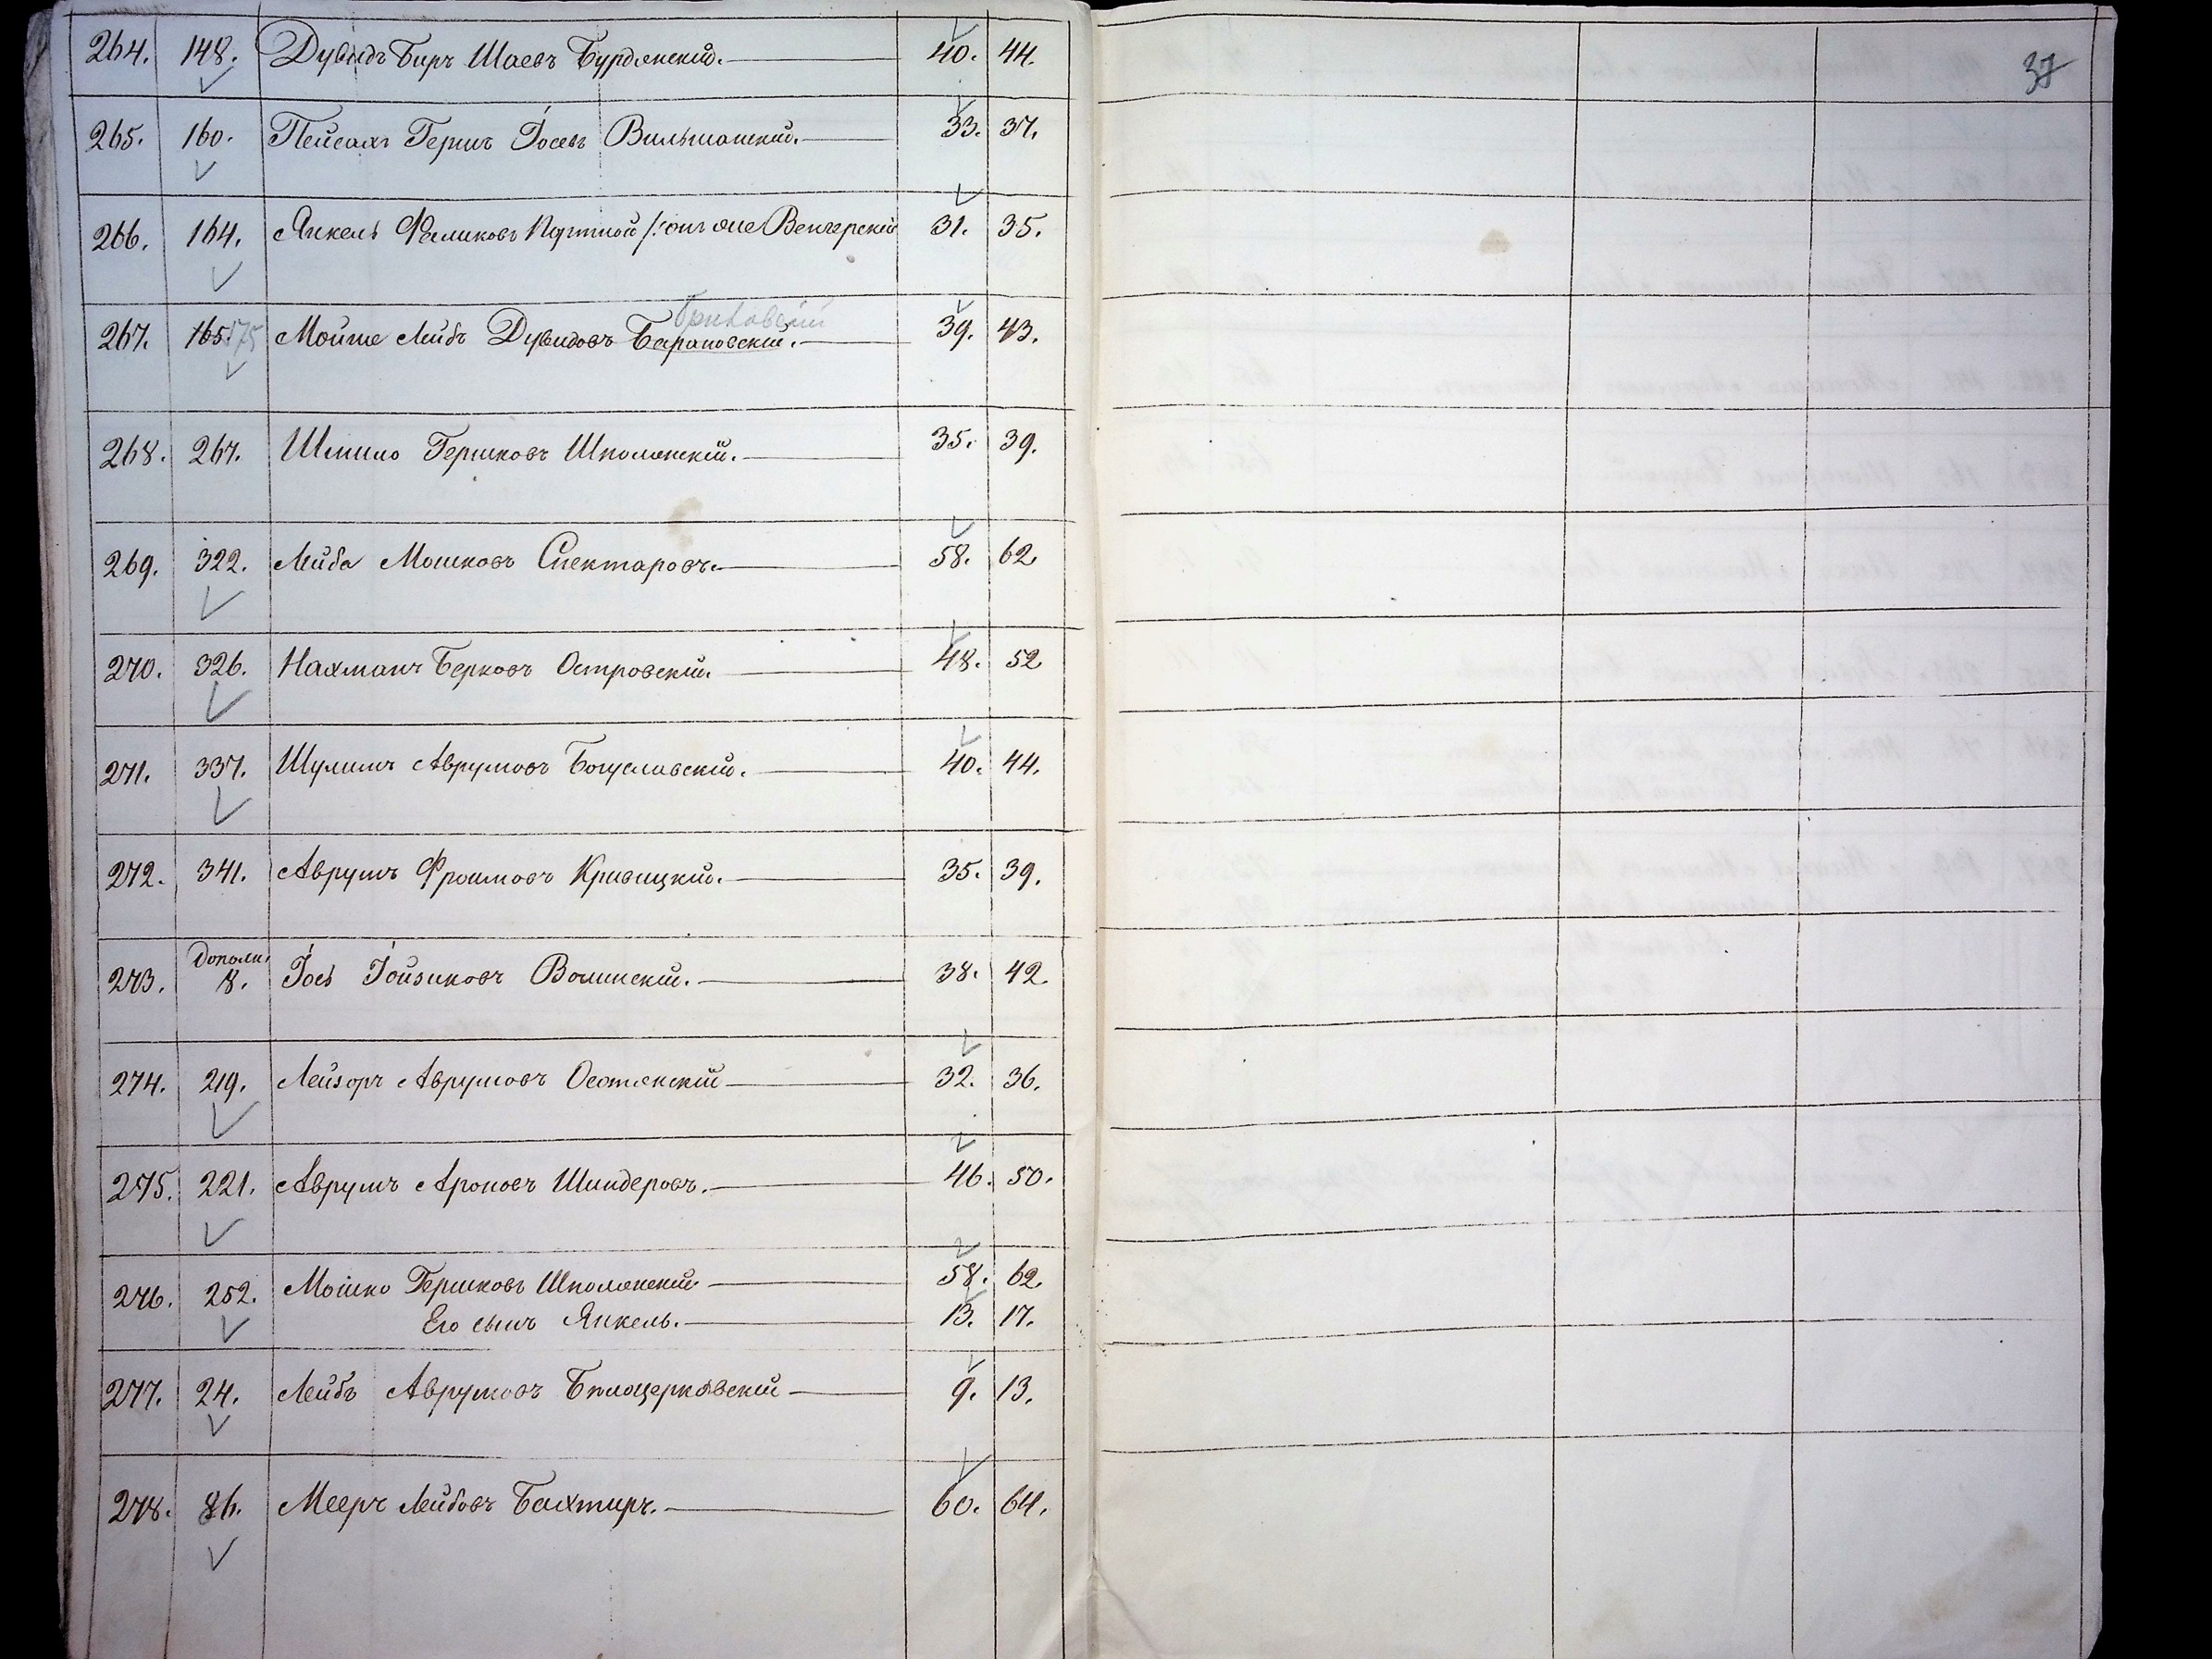 264. 148. Дувидъ Беръ Шаевъ Бурдянскій. 40. 44.
37
265. 160. Пейсахъ Гершъ Іосевъ Вильшанскій. 33. 37.
266. 164. Янкель Фаликовъ Портной /: онъ же Венгерскій 31. 35.
267. 165. 175 Мойше Лейбъ Дувидовъ Барановскій. 39. 43.
268. 267. Шмило Гершковъ Шполянскій. 35. 39.
269. 322. Лейба Мошковъ Спектаровъ. 58. 62
270. 326. Нахманъ Берковъ Островскій. 48. 52
271. 337. Шулимъ Аврумовъ Богуславскій. 40. 44.
272. 341. Аврумъ Фроимовъ Кривицкій. 35. 39.
Дополн.
273. 8. Іось Іойзиковъ Волинскій. 38. 42.
274. 219. Лейзоръ Аврумовъ Осотянскій 32. 36.
275. 221. Аврумъ Ароновъ Шиндеровъ. 46. 50.
276. 252. Мошко Гершковъ Шполянскій 58. 62.
Его сынъ Янкель. 13. 17.
277. 24. Лейбъ Аврумовъ Бѣлоцерковскій 9. 13.
278. 86. Мееръ Лейбовъ Бахтиръ. 60. 64.